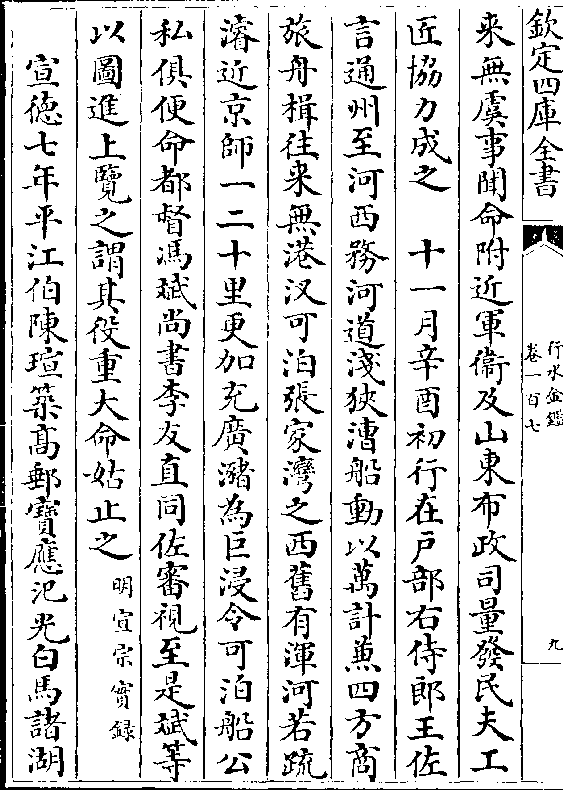 欽定四庫全書
行水金鑑
卷一百七
九
来無虞事聞命附近軍衞及山東布政司量發民夫工
匠協力成之　十一月辛酉初行在戸部右侍郎王佐
言通州至河西務河道淺狹漕船動以萬計兼四方商
旅舟楫往来無港汊可泊張家灣之西舊有渾河若疏
濬近京師一二十里更加充廣瀦為巨浸令可泊船公
私俱便命都督馮斌尚書李友直同佐審視至是斌等
以圖進上覽之謂其役重大命姑止之明宣宗實録
宣徳七年平江伯陳瑄築髙郵寶應汜光白馬諸湖